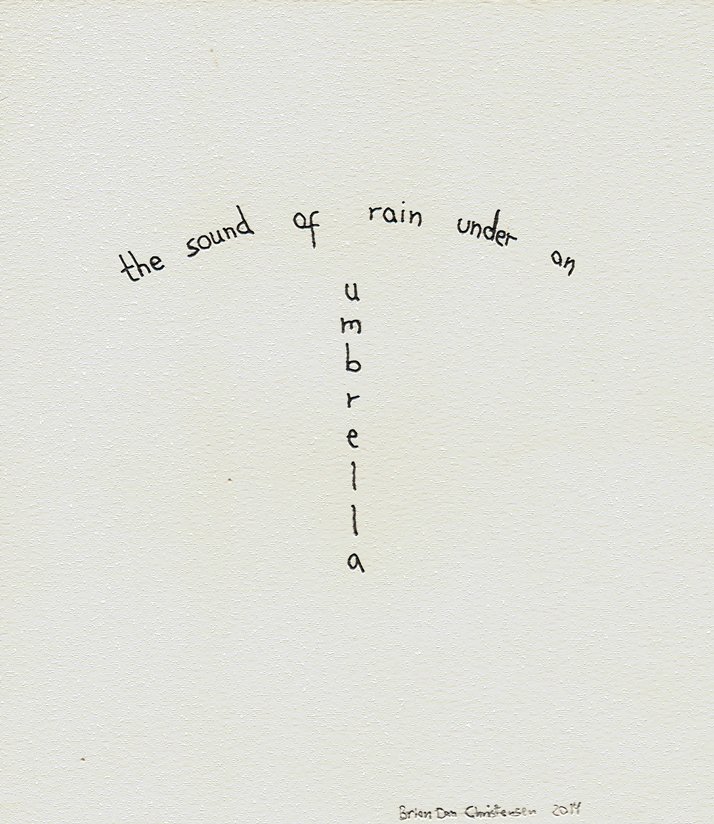 the sound of rain under an
u
m
b
r
e
l
l
a
Brian Dan Christensen 2014